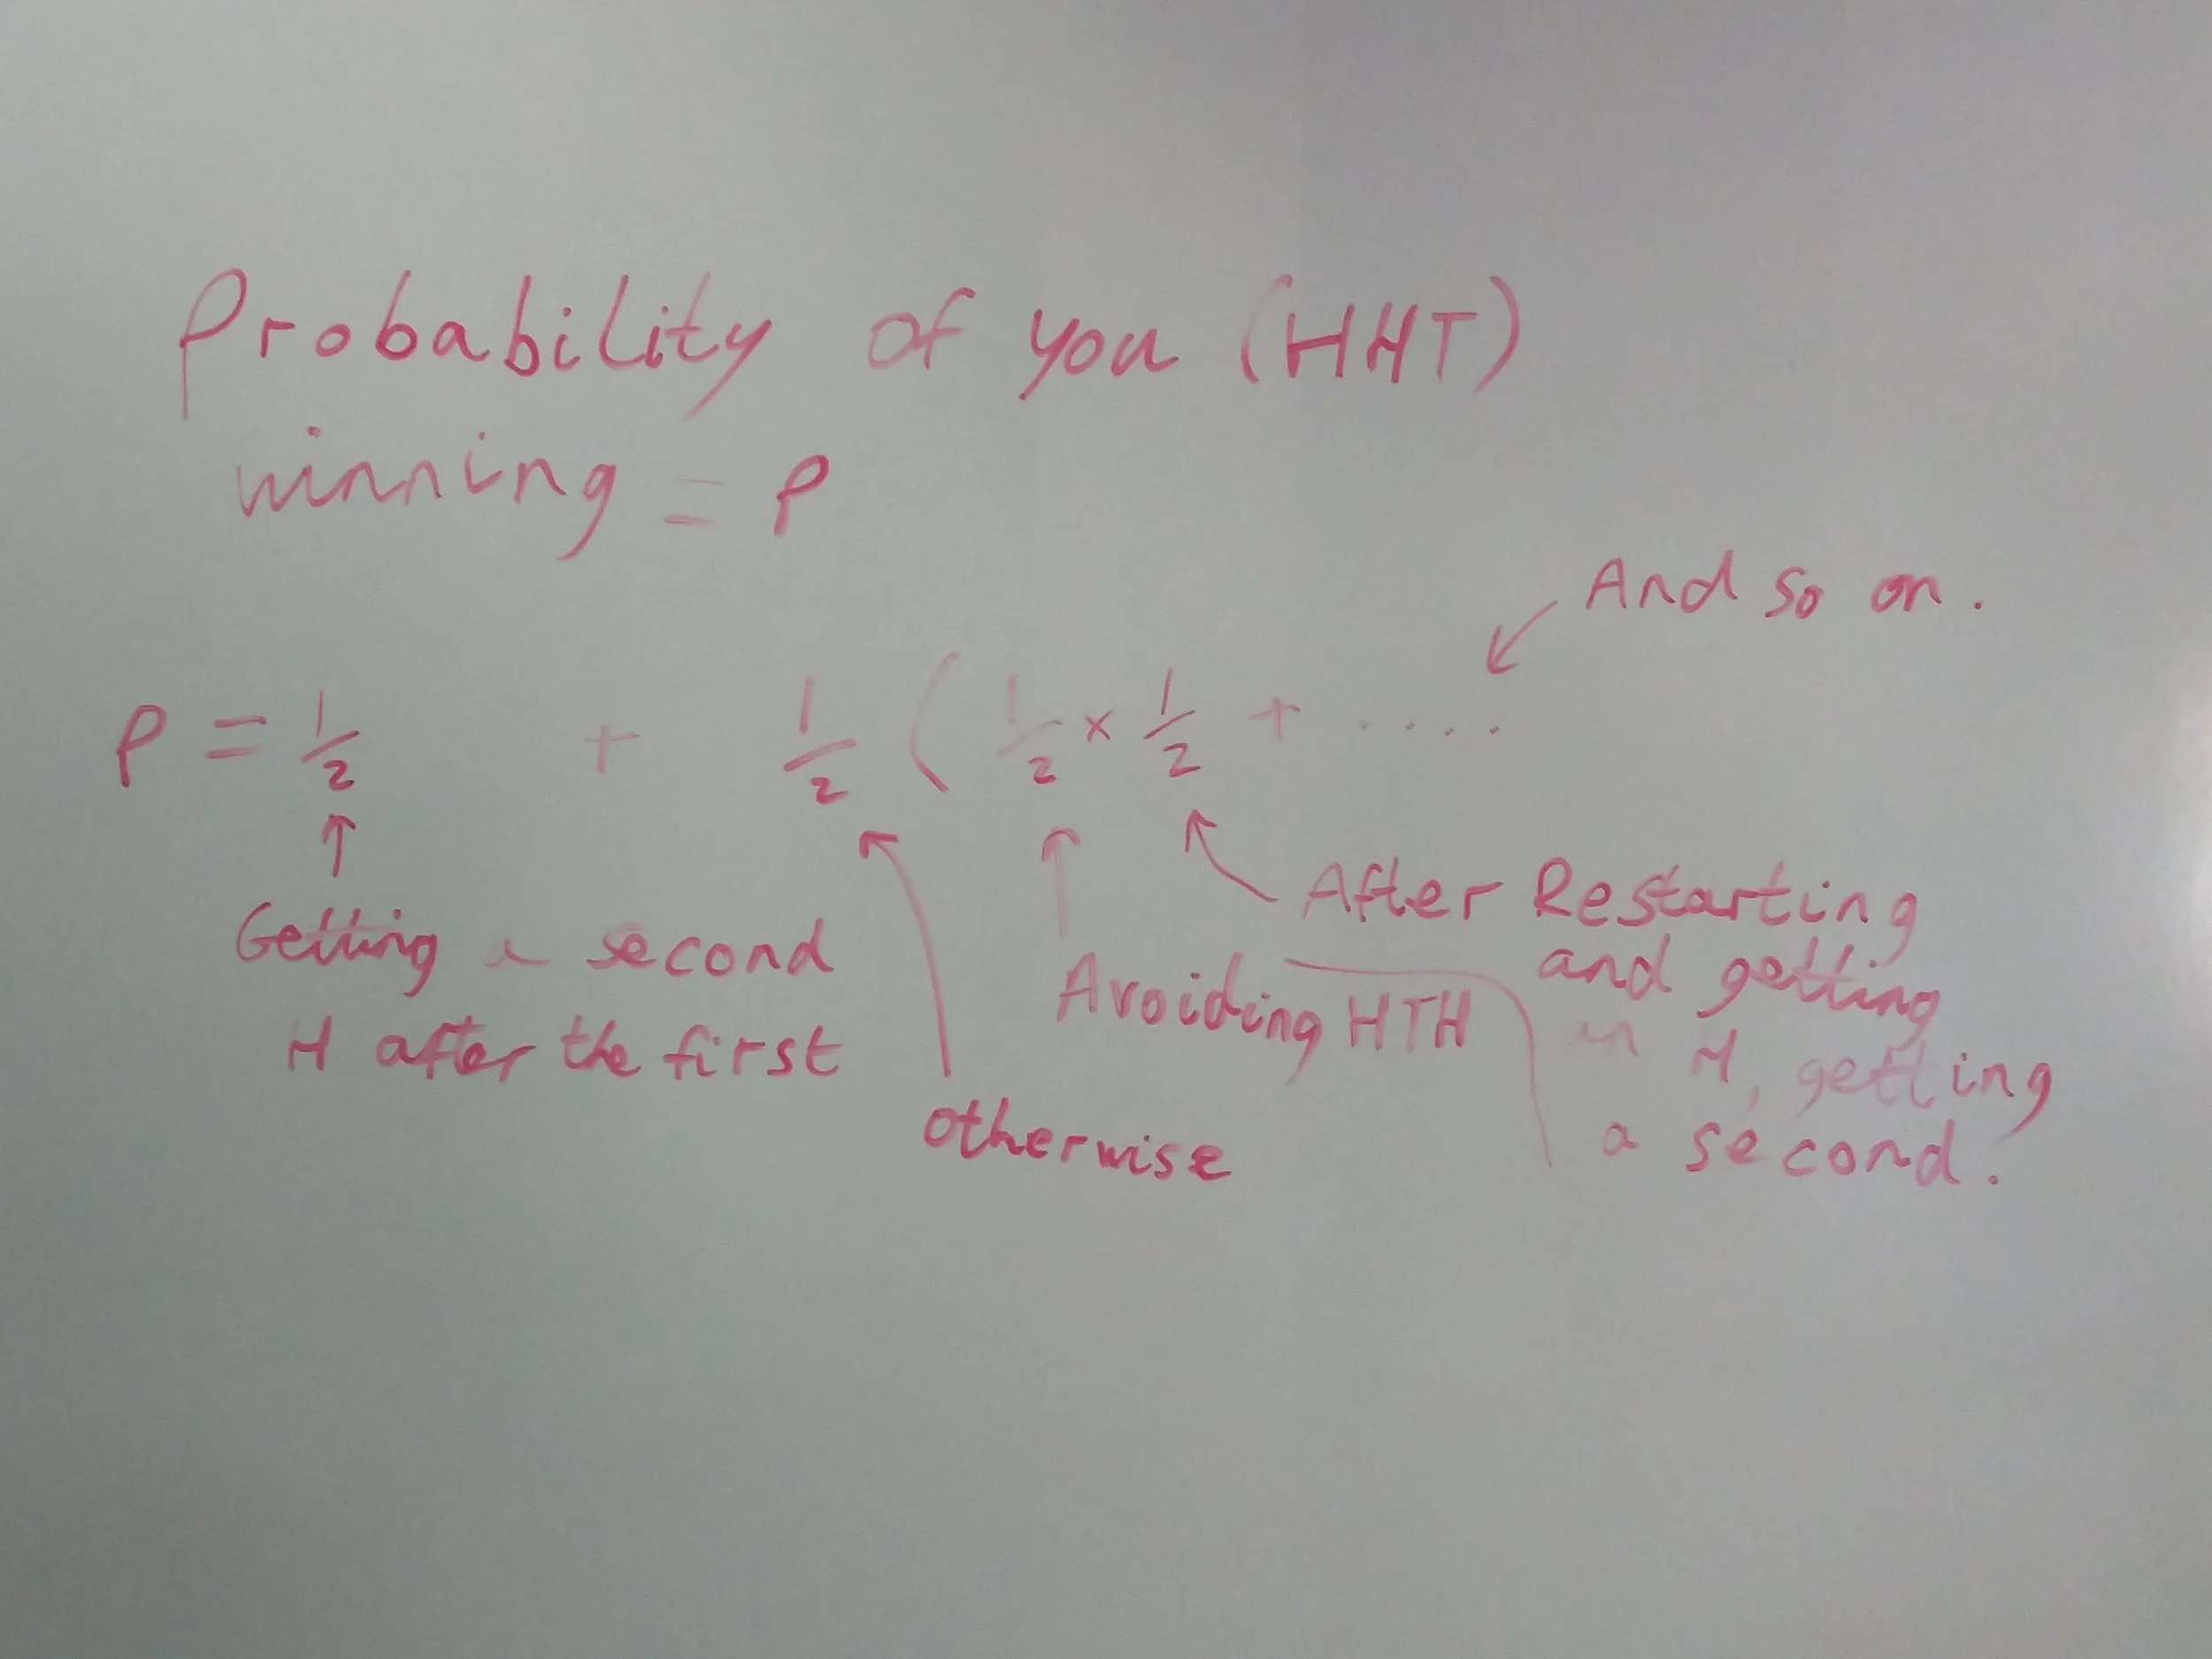 Probability of you (HHT)
winning = P
And so on.
P = 1/2 + 1/2 ( 1/2 x 1/2 + .....
Getting a second
H after the first
otherwise
Avoiding HTH
After Restarting
and getting
an H, getting
a second.